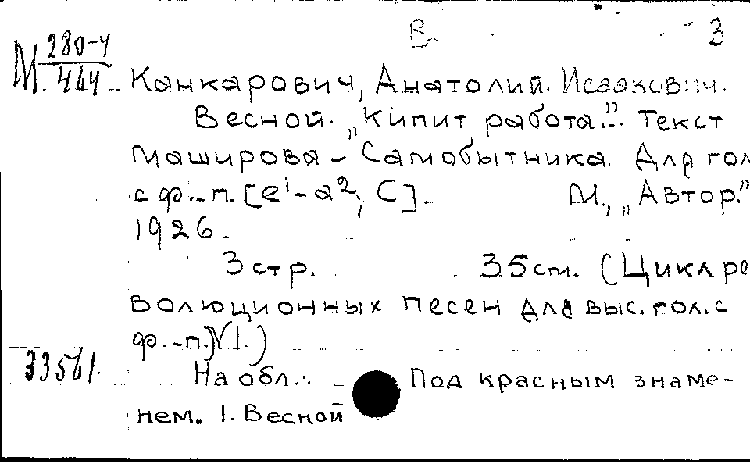 В. 3
М 280-4
464
Канкарович, Анатолий Исаакович.
Весной. „Кипит работа..." Текст
Маширова - Самобытника. Для гол.
с ф.-п. [e¹-a², C]. М., „Автор."
1926.
3 стр. 35 cm. (Цикл ре
волюционных песен для выс. гол. с
ф.-п. N 1.)
33561 На обл.: Под красным знаме-
нем. 1. Весной